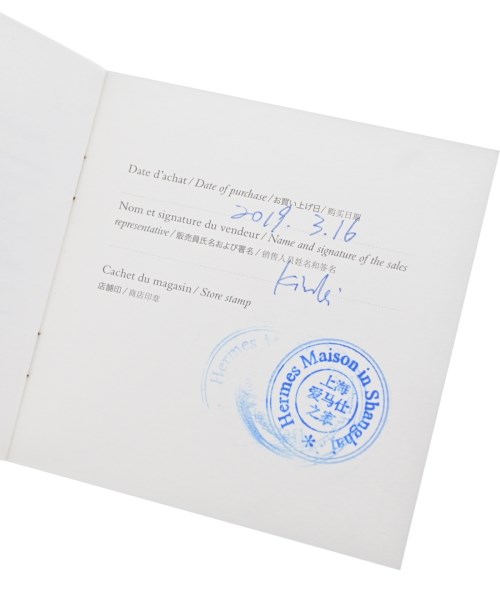 Date d'achat / Date of purchase / お買い上げ日 / 购买日期
2019. 3.16
Nom et signature du vendeur / Name and signature of the sales
representative / 販売員氏名および署名 / 销售人员姓名和签名
Cachet du magasin / Store stamp
店舗印 / 商店印章
Hermes
Hermes Maison in Shanghai
上海
爱马仕
之家
*